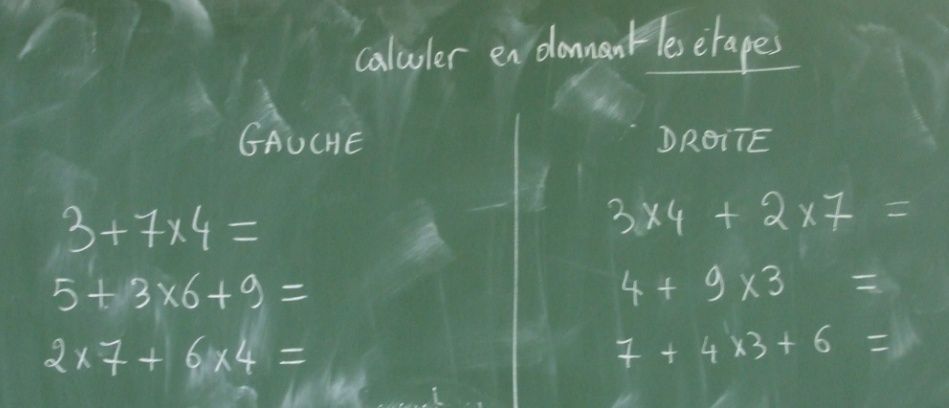 calculer en donnant les étapes
GAUCHE
3+7×4=
5+3×6+9=
2×7+6×4=
DROITE
3×4 + 2×7 =
4 + 9×3 =
7 + 4×3+6 =